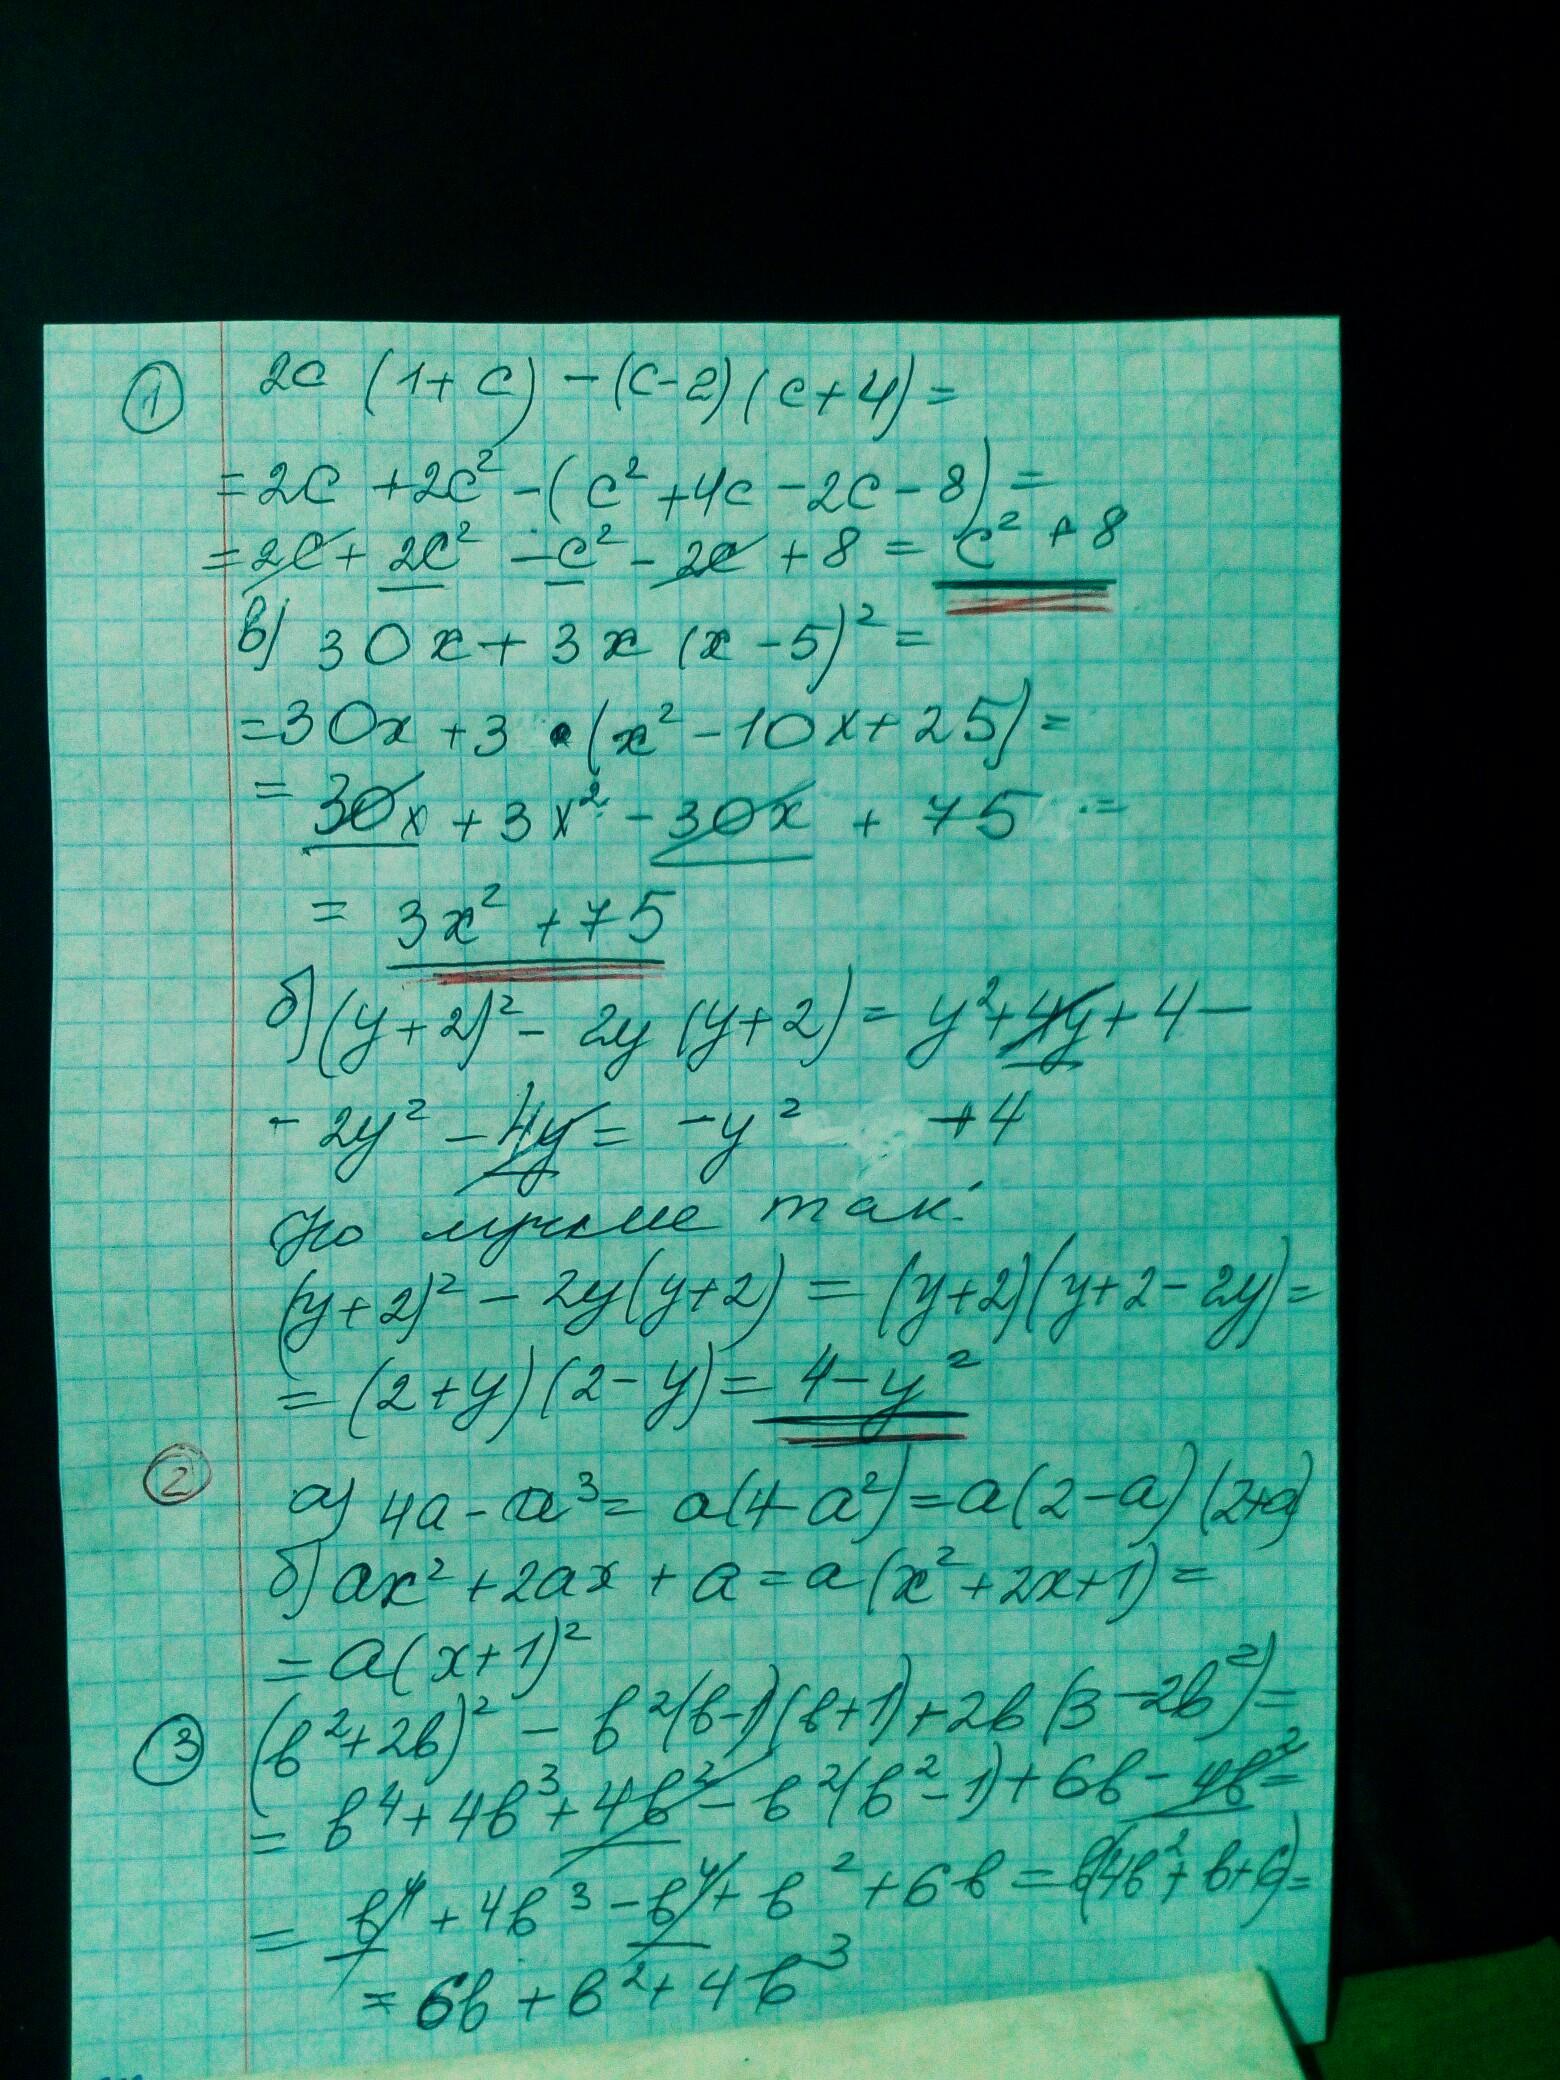 1 2c (1+c) - (c-2)(c+4) =
= 2c + 2c² - (c² + 4c - 2c - 8) =
= 2c + 2c² - c² - 2c + 8 = c² + 8
в) 30x + 3x (x - 5)² =
= 30x + 3 · (x² - 10x + 25) =
= 30x + 3x² - 30x + 75 =
= 3x² + 75
б) (y+2)² - 2y (y+2) = y² + 4y + 4 -
- 2y² - 4y = -y² + 4
Но лучше так:
(y+2)² - 2y(y+2) = (y+2)(y+2-2y) =
= (2+y)(2-y) = 4-y²
2 а) 4a - a³ = a(4-a²) = a(2-a)(2+a)
б) ax² + 2ax + a = a(x² + 2x + 1) =
= a(x+1)²
3 (b²+2b)² - b²(b-1)(b+1) + 2b(3-2b²) =
= b⁴ + 4b³ + 4b² - b²(b²-1) + 6b - 4b² =
= b⁴ + 4b³ - b⁴ + b² + 6b = b(4b² + b + 6) =
= 6b + b² + 4b³